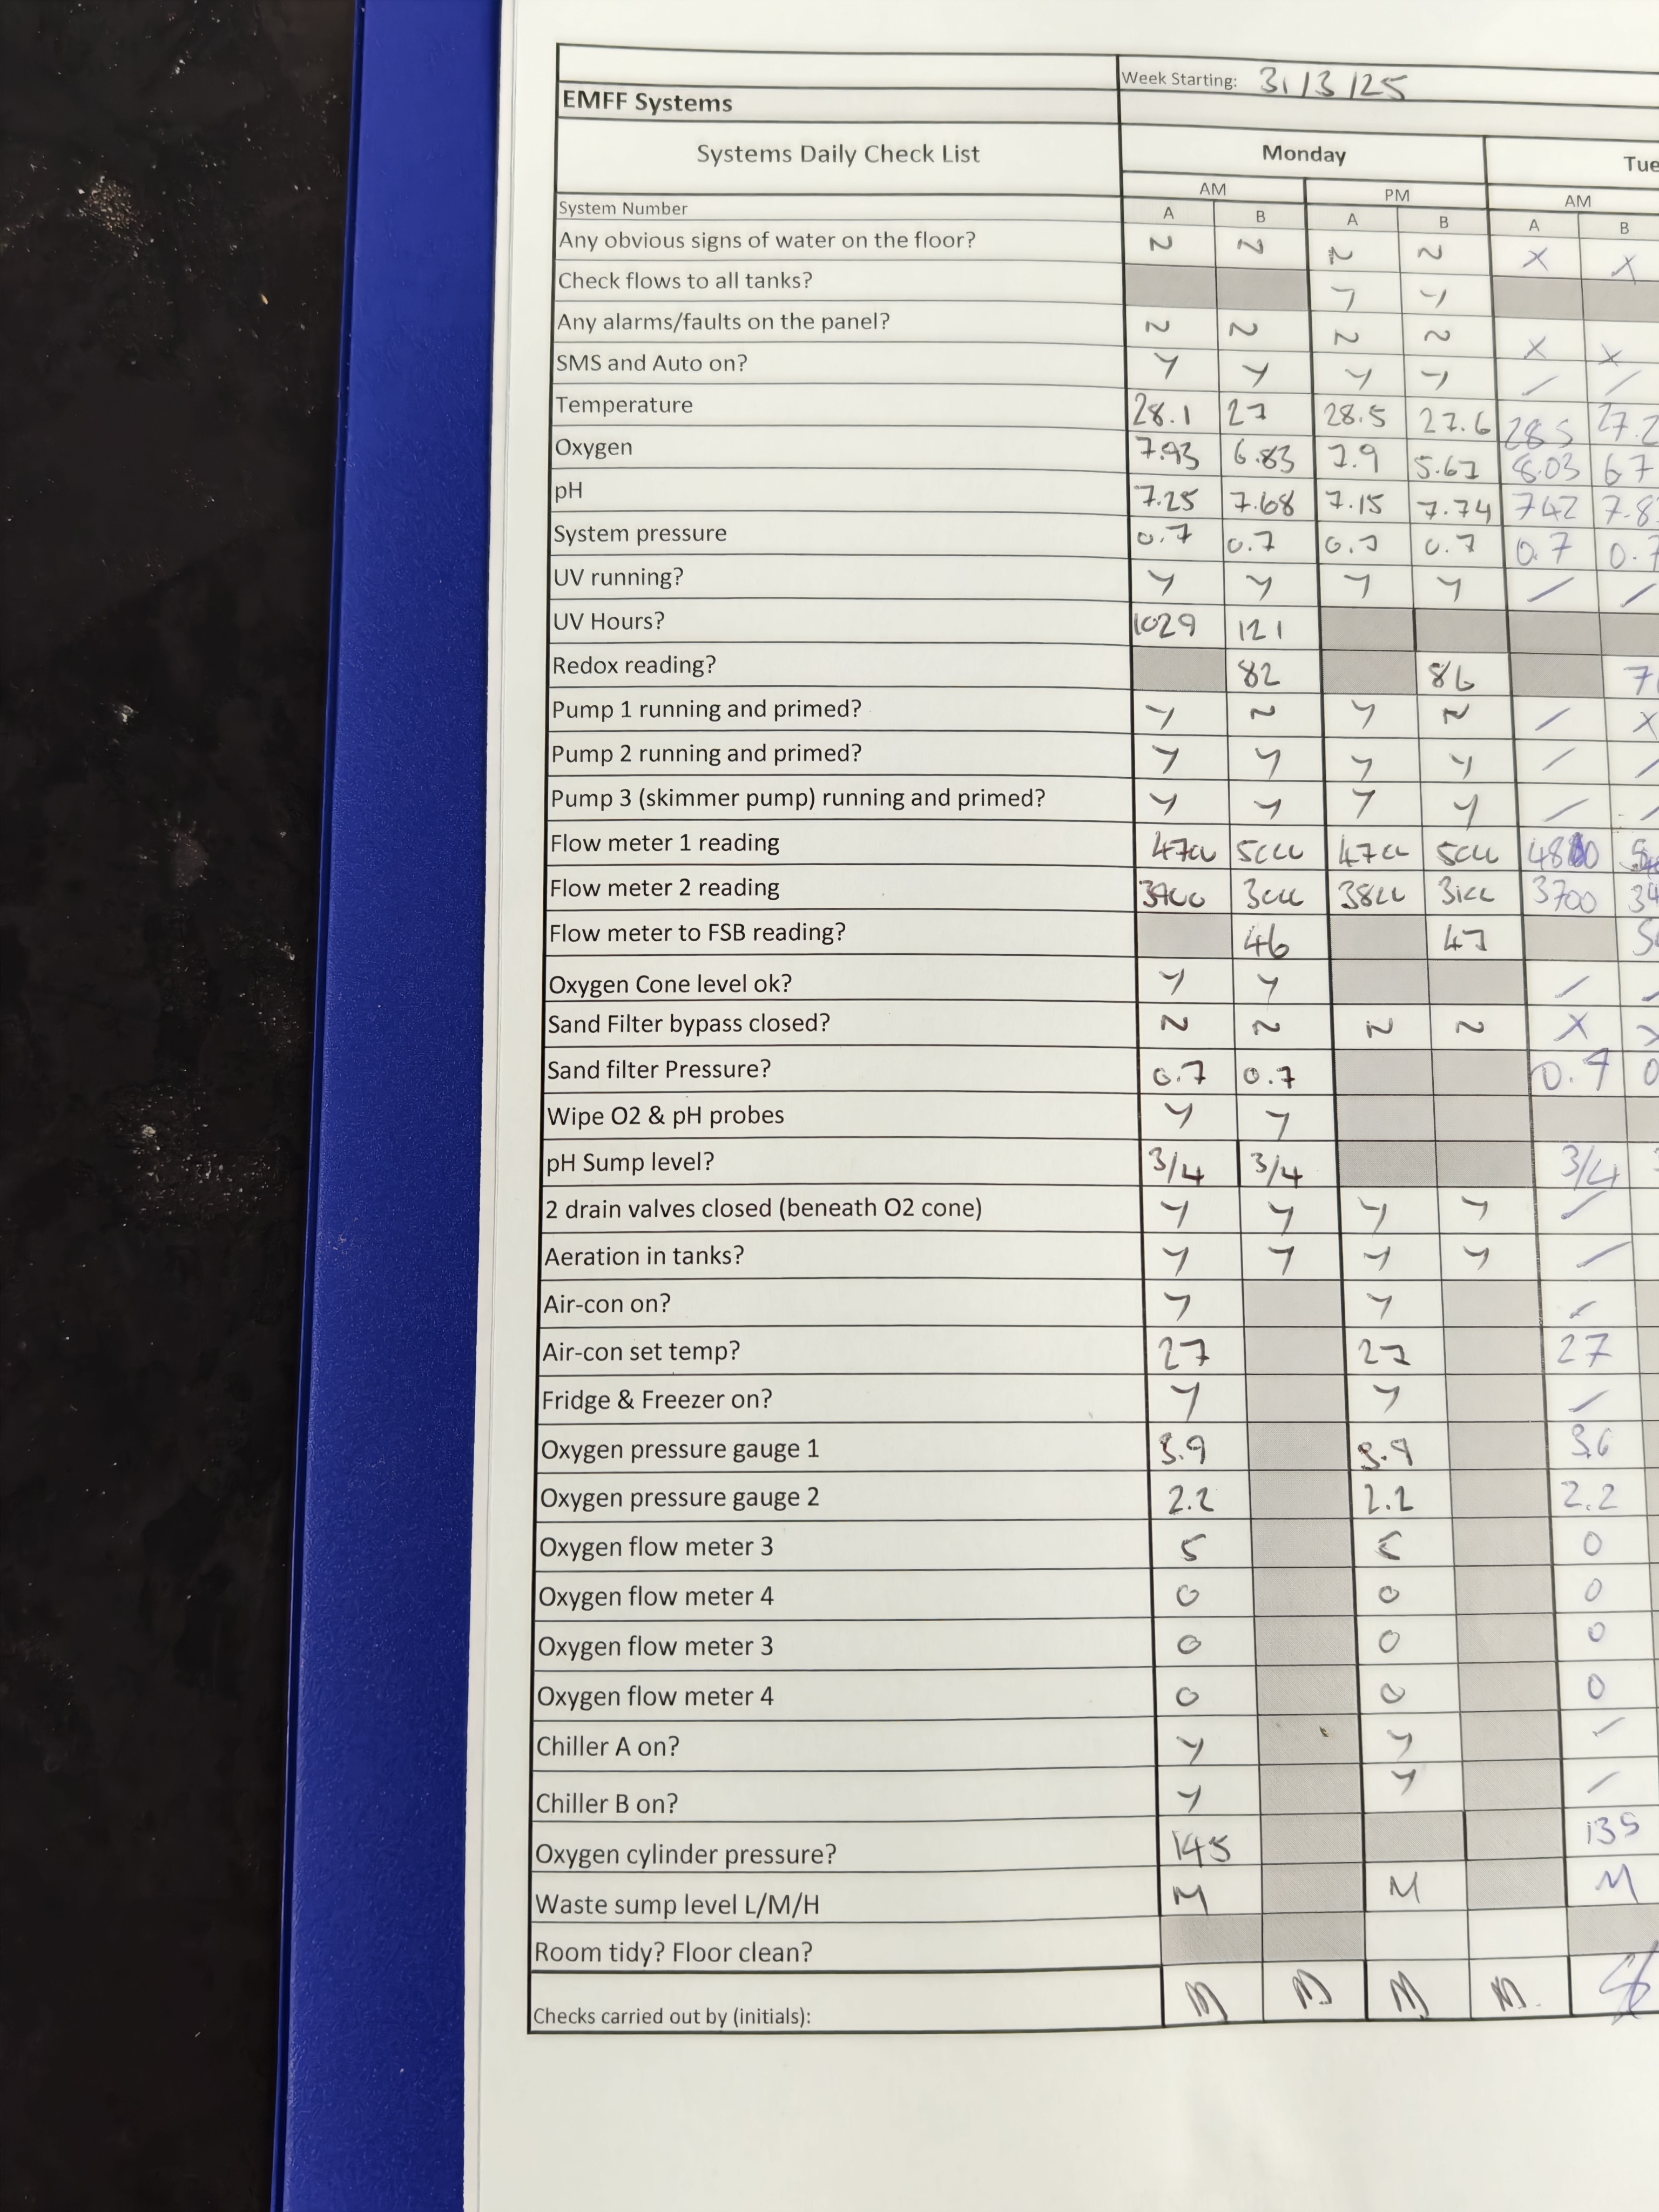 Week Starting: 31/3/25
EMFF Systems
Systems Daily Check List Monday Tue
AM PM AM
System Number A B A B A B
Any obvious signs of water on the floor? N N N N X X
Check flows to all tanks? Y Y
Any alarms/faults on the panel? N N N N X X
SMS and Auto on? Y Y Y Y / /
Temperature 28.1 27 28.5 27.6 28.5 27.2
Oxygen 7.93 6.83 7.9 5.67 8.03 67
pH 7.25 7.68 7.15 7.74 742 7.8
System pressure 0.7 0.7 0.7 0.7 0.7 0.7
UV running? Y Y Y Y / /
UV Hours? 1029 121
Redox reading? 82 86 7
Pump 1 running and primed? Y N Y N / X
Pump 2 running and primed? Y Y Y Y / /
Pump 3 (skimmer pump) running and primed? Y Y Y Y / /
Flow meter 1 reading 4700 5000 4700 5000
Flow meter 2 reading 3000 3800 3100 3700 34
Flow meter to FSB reading? 46 47
Oxygen Cone level ok? Y Y / /
Sand Filter bypass closed? N N N N X X
Sand filter Pressure? 0.7 0.7 0.7 0
Wipe O2 & pH probes Y Y
pH Sump level? 3/4 3/4 3/4
2 drain valves closed (beneath O2 cone) Y Y Y Y /
Aeration in tanks? Y Y Y Y /
Air-con on? Y Y /
Air-con set temp? 27 27 27
Fridge & Freezer on? Y Y /
Oxygen pressure gauge 1 3.9 3.9 3.6
Oxygen pressure gauge 2 2.2 2.2 2.2
Oxygen flow meter 3 5 5 0
Oxygen flow meter 4 0 0 0
Oxygen flow meter 3 0 0 0
Oxygen flow meter 4 0 0 0
Chiller A on? Y Y /
Chiller B on? Y Y /
Oxygen cylinder pressure? 145 135
Waste sump level L/M/H M M M
Room tidy? Floor clean?
Checks carried out by (initials):